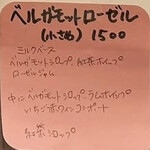 ベルガモットローゼル
(小さめ) 1500
ミルクベース
ベルガモットシロップ 紅茶ホイップ
ローゼルジャム
中にベルガモットシロップ ラムホイップ
いちご赤ワインコンポート
紅茶シロップ